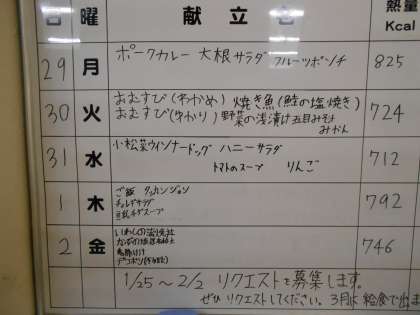 日 曜 献立名 熱量 Kcal
29 月 ポークカレー 大根サラダ フルーツポンチ 825
30 火 おむすび(わかめ) 焼き魚(鮭の塩焼き) 724
おむすび(ゆかり) 野菜の浅漬け 五目みそ
みかん
31 水 小松菜ウインナードッグ ハニーサラダ 712
トマトのスープ りんご
1 木 ご飯 タッカンジョン 792
チョレギサラダ
豆乳チゲスープ
2 金 746
デコポン
1/25～2/2 リクエストを募集します。
ぜひリクエストしてください。3月に給食で出ま